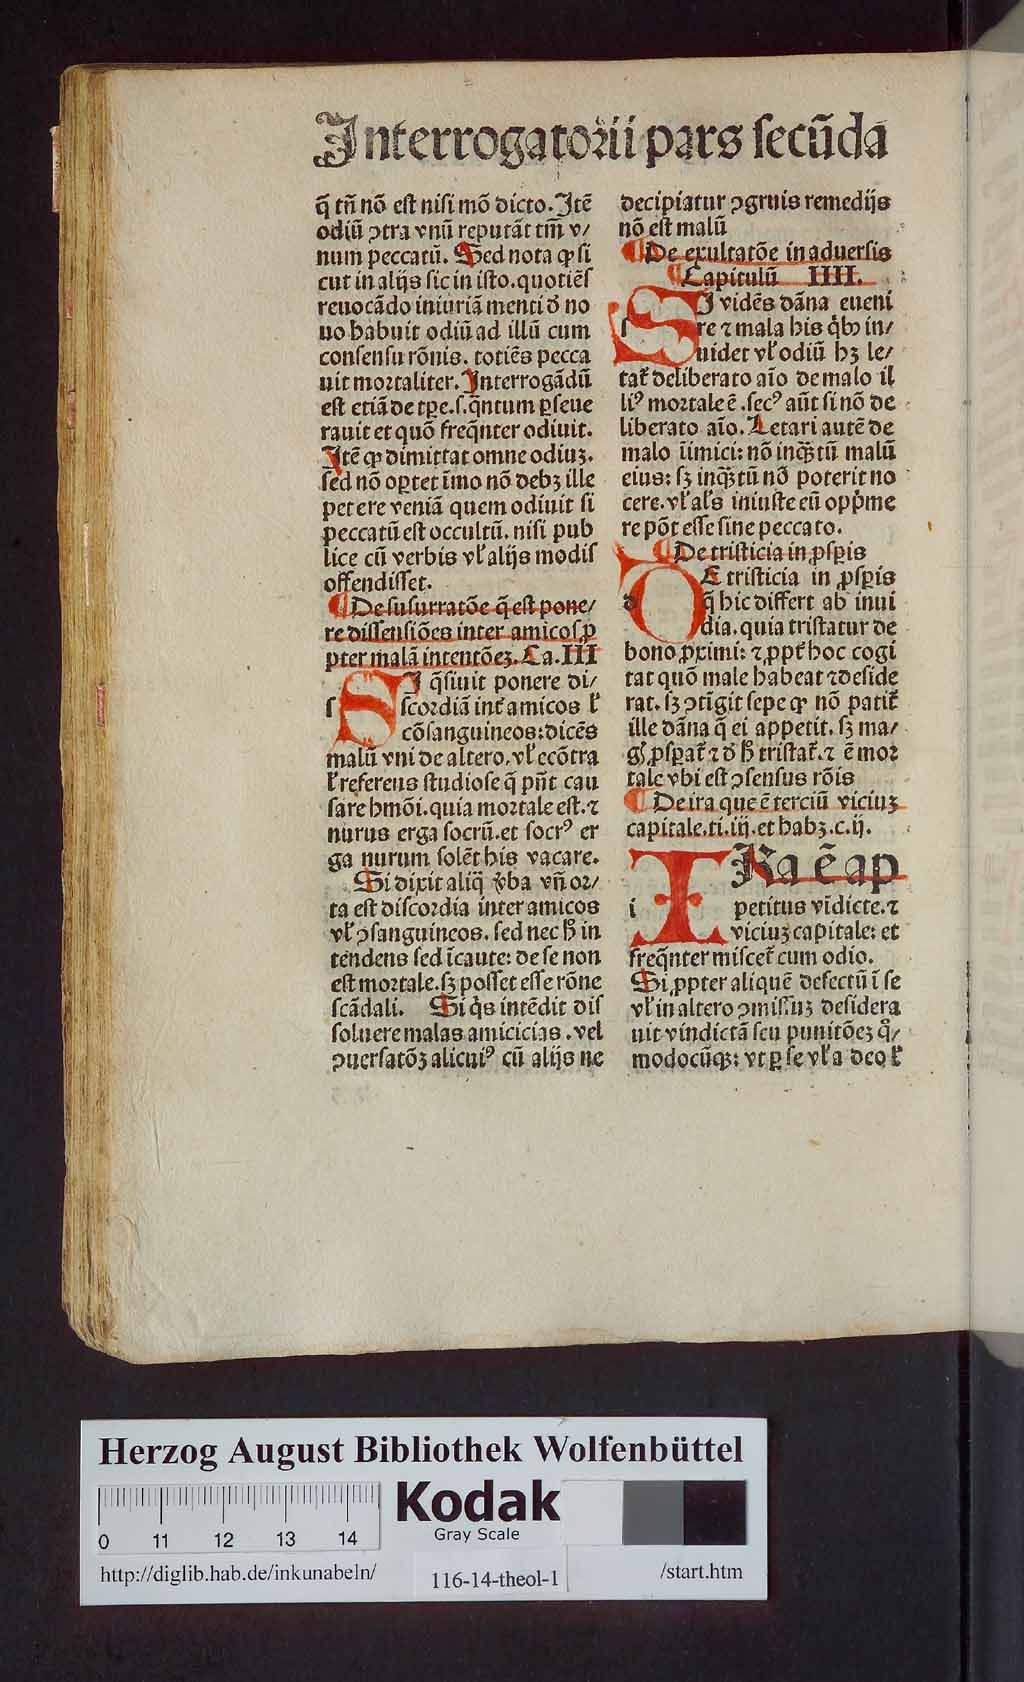 Interrogatorii pars ſecūda
q̄ tn̄ nō eſt niſi mō dicto. Itē
odiū ꝯtra vnū reputāt tm̄ v/
num peccatū. Sed nota ꝙ ſi
cut in alijs ſic in iſto. quotiēſ
reuocādo iniuriā menti đ no
uo habuit odiū ad illū cum
conſenſu rōnis. totiēs pecca
uit mortaliter. Interrogādū
eſt etiā de tꝑe. ſ. q̄ntum ꝑſeue
rauit et quō freq̄nter odiuit.
Itē ꝙ dimittat omne odiuꝫ.
ſed nō oꝑtet īmo nō debꝫ ille
petere veniā quem odiuit ſi
peccatū eſt occultū. niſi pub
lice cū verbis vl̓ alijs modiſ
offendiſſet.
¶ De ſuſurratōe q̄ eſt pone/
re diſſenſiōes inter amicoſ ꝓ
pter malā intentōeꝫ. Ca. III
ſ SI q̄ſiuit ponere di/
ſcordiā int̓ amicos l̓
cōſanguineos: dicēs
malū vni de altero. vl̓ ecōtra
l̓ referens ſtudioſe q̄ pn̄t cau
ſare hmōi. quia mortale eſt. ⁊
nurus erga ſocrū. et ſocrꝰ er
ga nurum ſolēt his vacare.
Si dixit aliq̄ v̓ba vn̄ or/
ta eſt diſcordia inter amicos
vl̓ ꝯſanguineos. ſed nec h̄ in
tendens ſed īcaute: de ſe non
eſt mortale. ſꝫ poſſet eſſe rōne
ſcādali. Si q̇s intēdit diſ
ſoluere malas amicicias. vel
ꝯuerſatōꝫ alicuiꝰ cū alijs ne
decipiatur ꝯgruis remedijs
nō eſt malū
¶ De exultatōe in aduerſis
¶ Capitulū IIII.
ſ SI vidēs dāna eueni
re ⁊ mala his q̇bꝰ in/
uidet vl̓ odiū hꝫ le/
tat̓ deliberato aīo de malo il
liꝰ mortale ē. ſecꝰ aūt ſi nō de
liberato aīo. Letari autē de
malo īimici: nō inq̄ꝫtū malū
eius: ſꝫ inq̄ꝫtū nō poterit no
cere. vl̓ al̓s iniuſte eū opp̓me
re pōt eſſe ſine peccato.
¶ De triſticia in ꝓſꝑis
d DE triſticia in ꝓſꝑis
q̄ hic differt ab inui
dia. quia triſtatur de
bono ꝓximi: ⁊ ꝓpt̓ hoc cogi
tat quō male habeat ⁊ deſide
rat. ſꝫ ꝯtīgit ſepe ꝙ nō patit̓
ille dāna q̄ ei appetit. ſꝫ ma/
gꝭ ꝓſꝑat̓ ⁊ đ h̄ triſtat̓. ⁊ ē mor
tale vbi eſt ꝯſenſus rōis
¶ De ira que ē terciū viciuꝫ
capitale. ti. iij. et habꝫ. c. ij.
i IRa ē ap
petitus vīdicte. ⁊
viciuꝫ capitale: et
freq̄nter miſcet̓ cum odio.
Si ꝓpter aliquē defectū ī ſe
vl̓ in altero ꝯmiſſuꝫ deſidera
uit vindictā ſeu punitōeꝫ q̊/
modocūqꝫ: vt ꝑ ſe vl̓ a deo l̓
Herzog August Bibliothek Wolfenbüttel
0 11 12 13 14
Kodak
Gray Scale
http://diglib.hab.de/inkunabeln/
116-14-theol-1
/start.htm